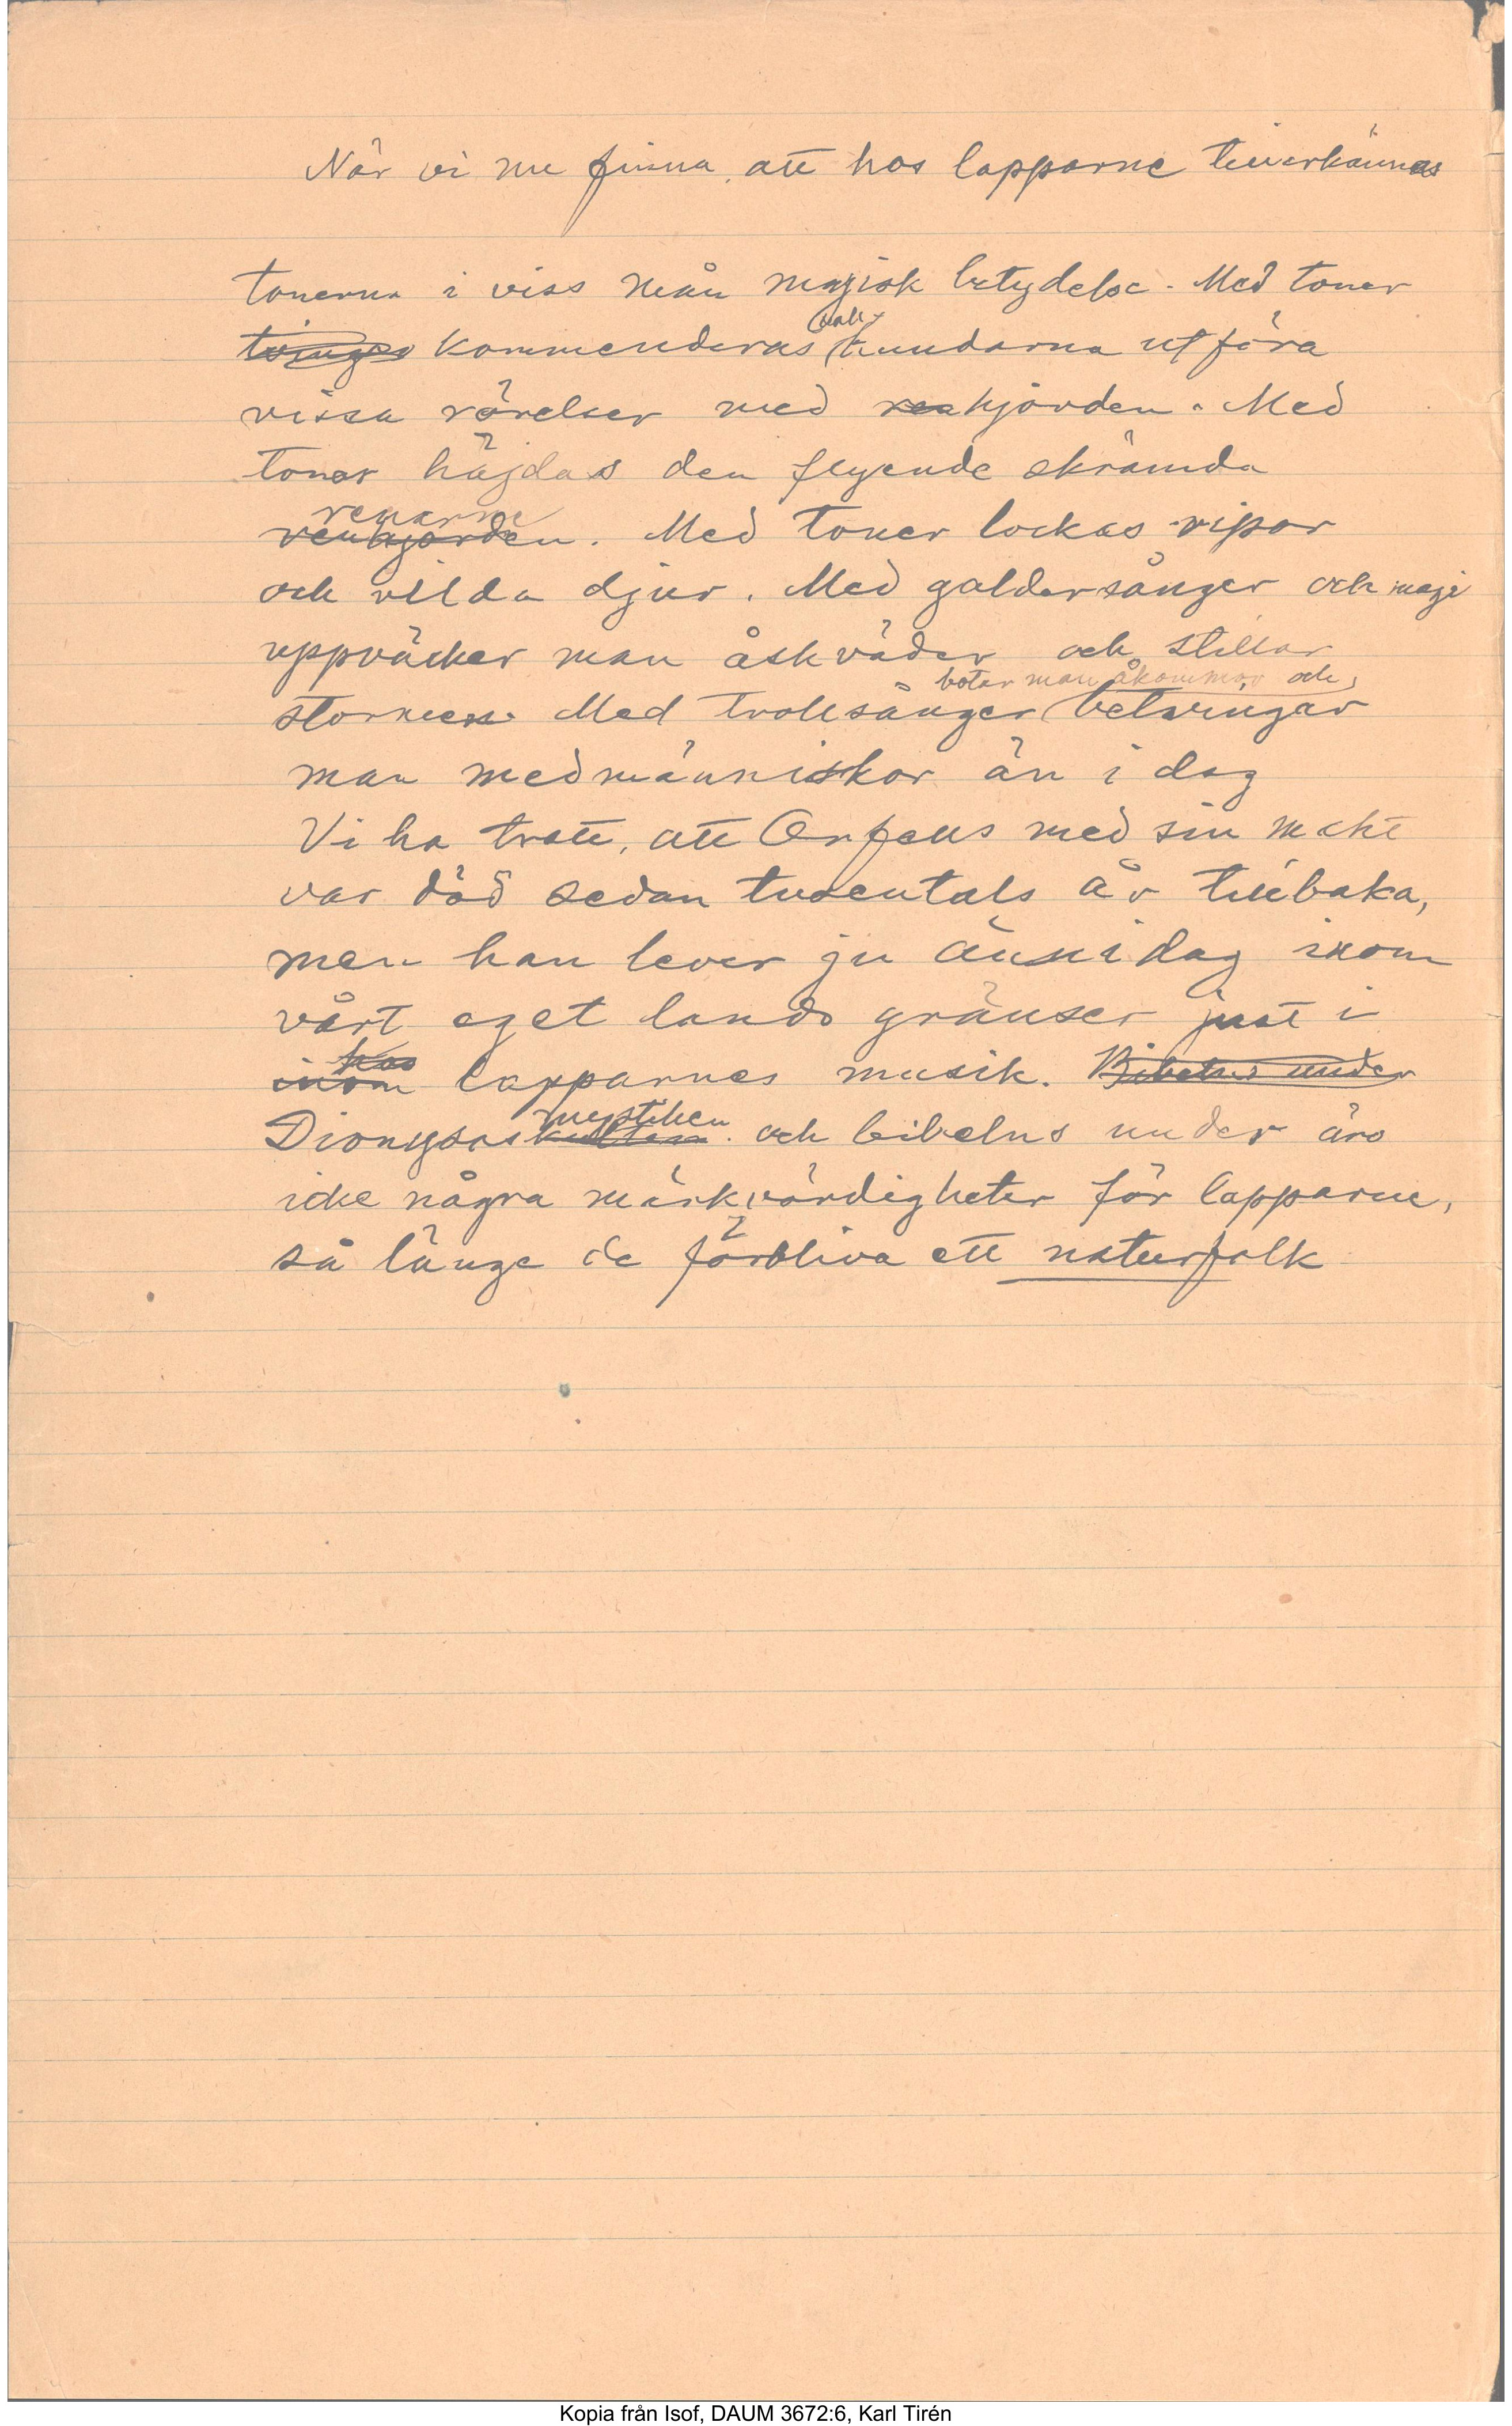 När vi nu finna, att hos lapparne tillerkännas
tonerna i viss mån magisk betydelse. Med toner
tvingas kommenderas (vall-
hundarna utföra
vissa rörelser med renhjorden. Med
toner häjdas den flyende skrämda
renarne
renhjorden. Med toner lockas ripor
och vilda djur. Med galdersånger och magi
uppväcker man åskväder och stillar
botar man åkommor och
stormen. Med trollsånger betvingar
man medmänniskor än i dag
Vi ha trott, att Orfeus med sin makt
var död sedan tusentals år tillbaka,
men han lever ju ännu i dag inom
vårt eget lands gränser just i
hos
inom lapparnes musik. Bibelns under
mystiken
Dionysoskulten och bibelns under äro
icke några märkvärdigheter för lapparne,
så länge de förbliva ett naturfolk
Kopia från Isof, DAUM 3672:6, Karl Tirén